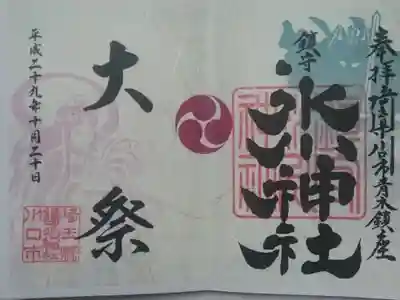 奉拝 埼玉県川口市青木鎮座
鎮守
氷川神社
大祭
平成二十九年十月二十日
埼玉県
鎮守氷川神社
川口市